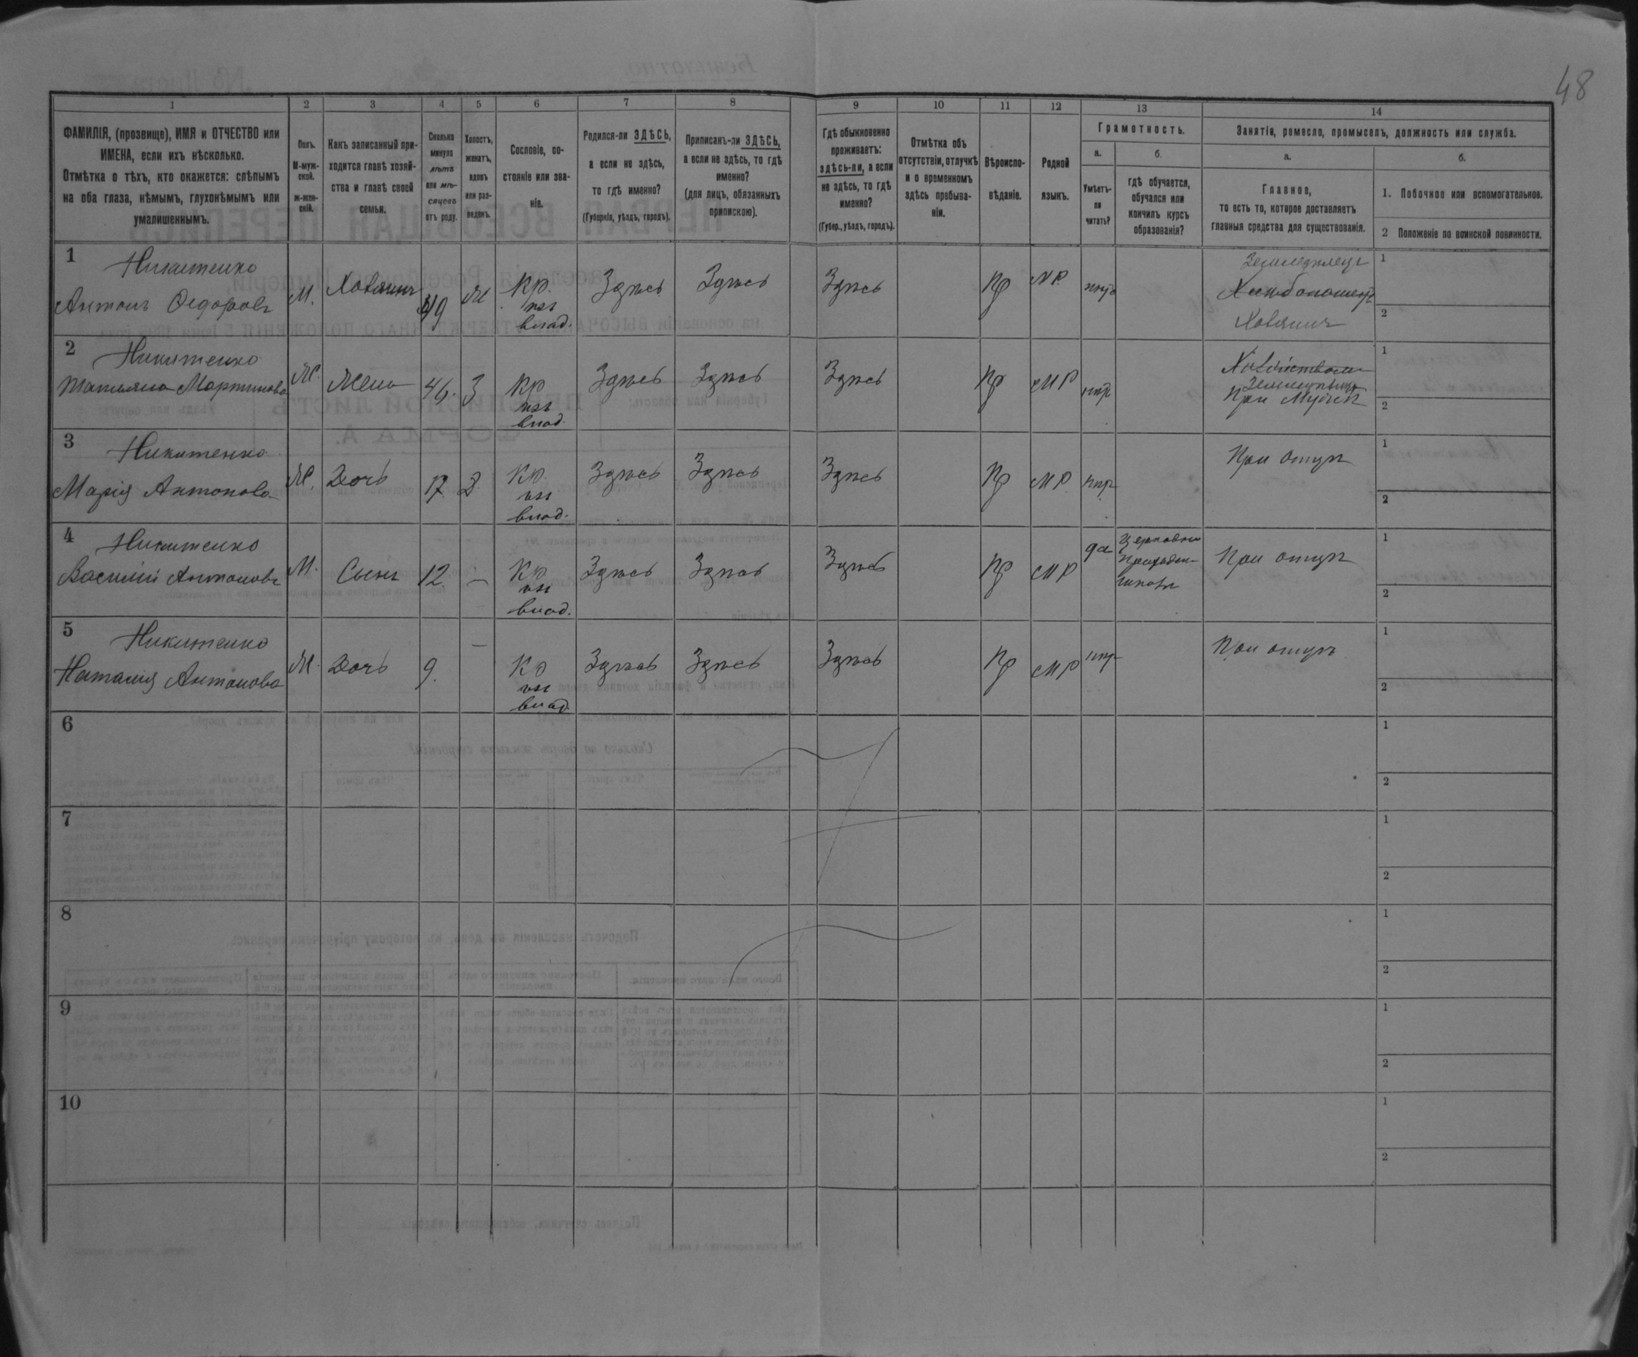 48
1 2 3 4 5 6 7 8 9 10 11 12 13 14
ФАМИЛІЯ, (прозвище), ИМЯ и ОТЧЕСТВО или
ИМЕНА, если ихъ нѣсколько.
Отмѣтка о тѣхъ, кто окажется: слѣпымъ
на оба глаза, нѣмымъ, глухонѣмымъ или
умалишеннымъ.
Полъ.
М-муж-
ской.
ж-жен-
скій.
Какъ записанный при-
ходится главѣ хозяй-
ства и главѣ своей
семьи.
Сколько
минуло
лѣтъ
или мѣ-
сяцевъ
отъ роду.
Холостъ,
женатъ,
вдовъ
или раз-
веденъ.
Сословіе, со-
стояніе или зва-
ніе.
Родился-ли ЗДѢСЬ,
а если не здѣсь,
то гдѣ именно?
(Губернія, уѣздъ, городъ).
Приписанъ-ли ЗДѢСЬ,
а если не здѣсь, то гдѣ
именно?
(для лицъ, обязанныхъ
припискою).
Гдѣ обыкновенно
проживаетъ:
здѣсь-ли, а если
не здѣсь, то гдѣ
именно?
(Губер., уѣздъ, городъ).
Отмѣтка объ
отсутствіи, отлучкѣ
и о временномъ
здѣсь пребыва-
ніи.
Вѣроиспо-
вѣданіе.
Родной
языкъ.
Грамотность.
а.
Умѣетъ-
ли
читать?
б.
гдѣ обучается,
обучался или
кончилъ курсъ
образованія?
Занятія, ремесло, промыселъ, должность или служба.
а.
Главное,
то есть то, которое доставляетъ
главныя средства для существованія.
б.
1. Побочное или вспомогательное.
2 Положеніе по воинской повинности.
1
Никитенко
Антонъ Федоровъ
М. Хозяинъ 49 Ж Кр. изъ влад. Здѣсь Здѣсь Здѣсь Пр МР
Земледѣлецъ
Хозяинъ
1
2
2
Никитенко
Татьяна Мартинова
Ж. Жена 46. З Кр изъ влад. Здѣсь Здѣсь Здѣсь Пр МР
При Мужѣ
1
2
3
Никитенко
Марія Антонова
Ж. Дочь 17 Д Кр изъ влад. Здѣсь Здѣсь Здѣсь Пр МР При отцѣ
1
2
4
Никитенко
Василій Антоновъ
М. Сынъ 12 – Кр изъ влад. Здѣсь Здѣсь Здѣсь Пр МР да При отцѣ
1
2
5
Никитенко
Наталія Антонова
Ж Дочь 9. – Кр изъ влад Здѣсь Здѣсь Здѣсь Пр МР При отцѣ
1
2
6
1
2
7
1
2
8
1
2
9
1
2
10
1
2